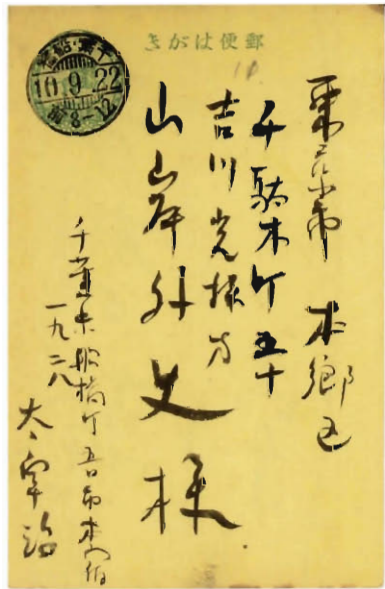 郵便はがき
千葉・船橋
10.9.22
后8-12
東京市 本郷区
千駄木町五十
吉川光様方
山岸外史様
千葉県船橋町五日市本宿
一九二八
太宰治